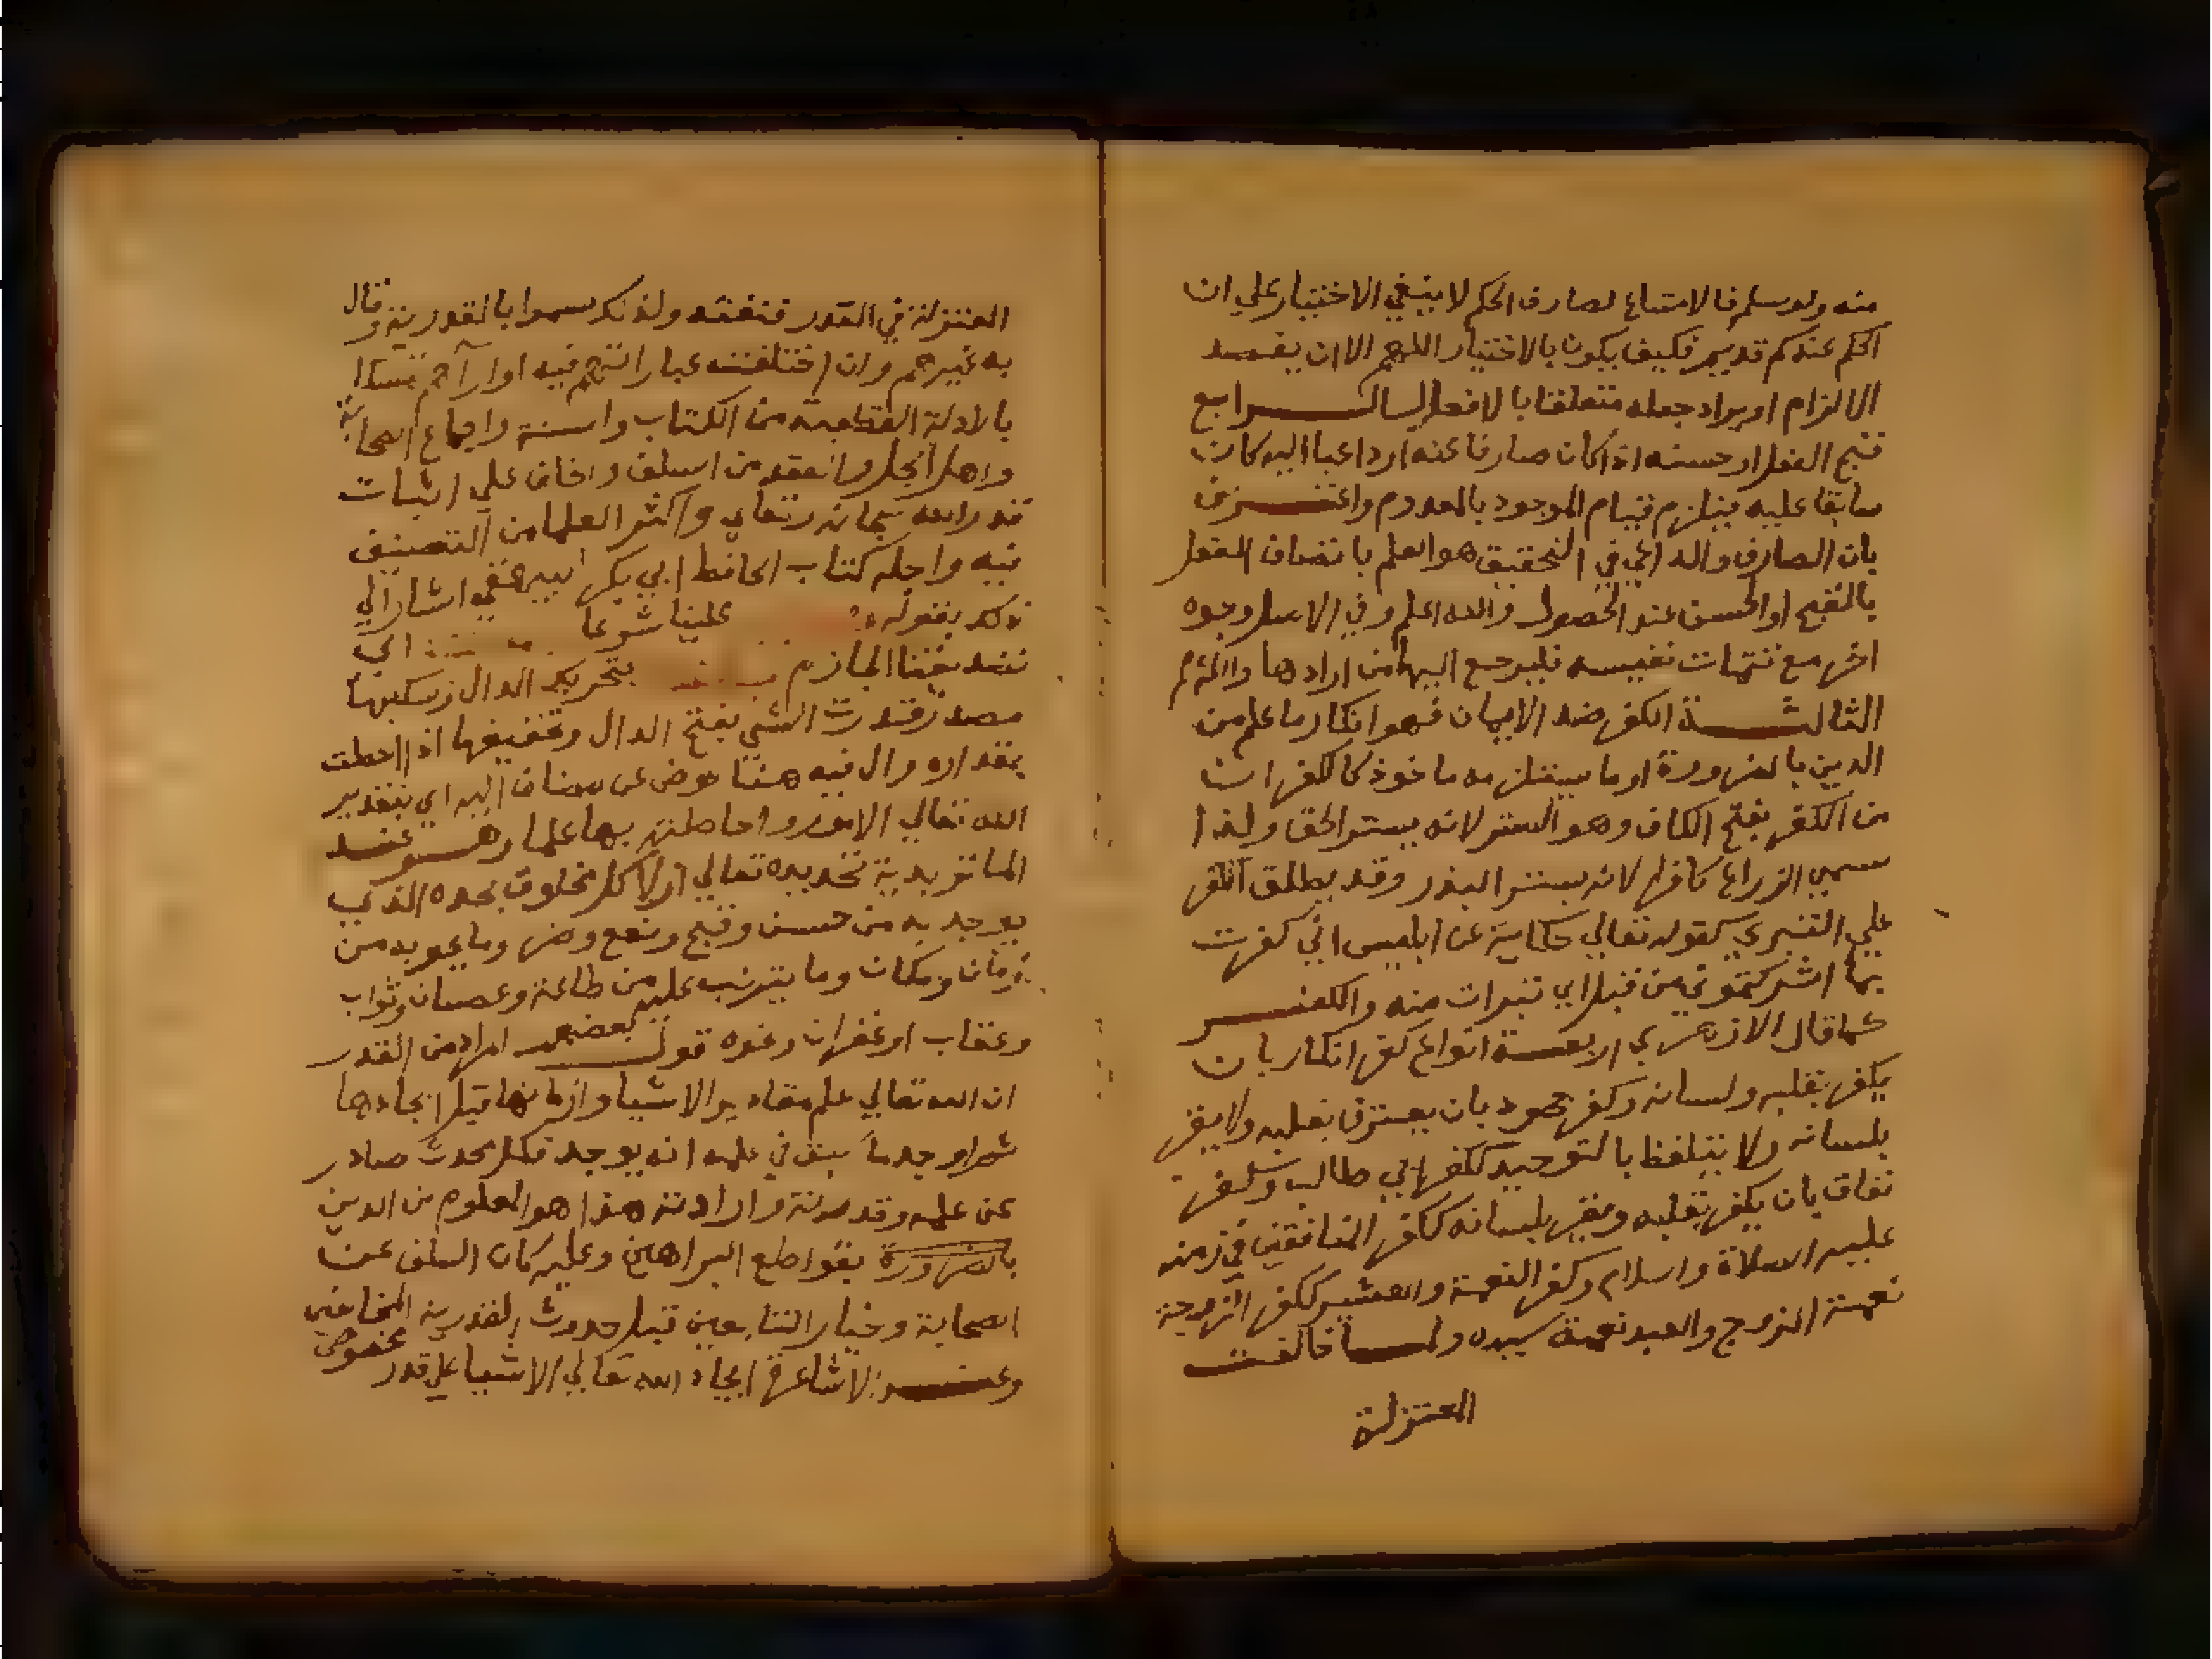 منه ولو سلم فالامتناع لصارف الحكم لا ينبغي الاختيار علي ان
الحكم عندكم قديم فكيف يكون بالاختيار اللهم الا ان يقصد
الالزام او يراد جعله متعلقا بالافعال الرابع
قبح الفعل او حسنه اذا كان صارفا عنه او داعيا اليه كان
سابقا عليه فيلزم قيام الموجود بالمعدوم واعترض
بان الصارف والداعي في التحقيق هو العلم باتصاف الفعل
بالقبح او الحسن عند الحصول والله اعلم وفي الاصل وجوه
اخر مع تتمات نفيسه فليرجع اليها من ارادها
الثالثة الكفر ضد الايمان فهو انكار ما علم من
الدين بالضرورة او ما يستلزمه ماخوذ كالكفران
من الكفر بفتح الكاف وهو الستر لانه يستر الحق ولذا
سمي الزراع كافرا لانه يستر البذر وقد يطلق الكفر
علي التبري كقوله تعالي حكاية عن ابليس اني كفرت
بما اشركتموني من قبل اي تبرات منه والكفر
كما قال الازهري اربعة انواع كفر انكار بان
يكفر بقلبه ولسانه وكفر جحود بان يعترف بقلبه ولا يقر
بلسانه ولا يتلفظ بالتوحيد ككفر ابي طالب وكفر
نفاق بان يكفر بقلبه ويقر بلسانه ككفر المنافقين في زمنه
عليه الصلاة والسلام وكفر النعمة والعشير ككفر الزوجة
نعمة الزوج والعبد نعمة سيده ولما خالفت
المعتزلة
المعتزلة في القدر فنفته ولذلك سموا بالقدرية وقال
به غيرهم وان اختلفت عباراتهم فيه اوارآهم تمسكا
بالادلة القطعية من الكتاب والسنة واجماع الصحابة
واهل الحل والعقد من السلف والخلف علي اثبات
قدر الله سبحانه وتعالي واكثر العلما من التصنيف
فيه واجله كتاب الحافظ ابي بكر البيهقي اشار الي
ذلك بقوله علينا شرعا اي
تصديقنا الجازم بتحريك الدال وسكونها
مصدر قدرت الشي بفتح الدال وتخفيفها اذا احطت
بمقداره وال فيه هنا عوض عن مضاف اليه اي بتقدير
الله تعالي الامور واحاطته بها علما وهو عند
الماتريدية تحديده تعالي ازلا كل مخلوق بحده الذي
يوجد به من حسن وقبح ونفع وضر وما يحويه من
زمان ومكان وما يترتب عليه من طاعة وعصيان وثواب
وعقاب او غفران ونحوه قول بعضهم المراد من القدر
ان الله تعالي علم مقادير الاشيا وازمانها قبل ايجادها
ثم اوجد ما سبق في علمه انه يوجد فكل محدث صادر
عن علمه وقدرته وارادته هذا هو المعلوم من الدين
بالضرورة بقواطع البراهين وعليه كان السلف من
الصحابة وخيار التابعين قبل حدوث القدرية المخالفين
وعند الاشاعرة ايجاد الله تعالي الاشيا علي قدر مخصوص